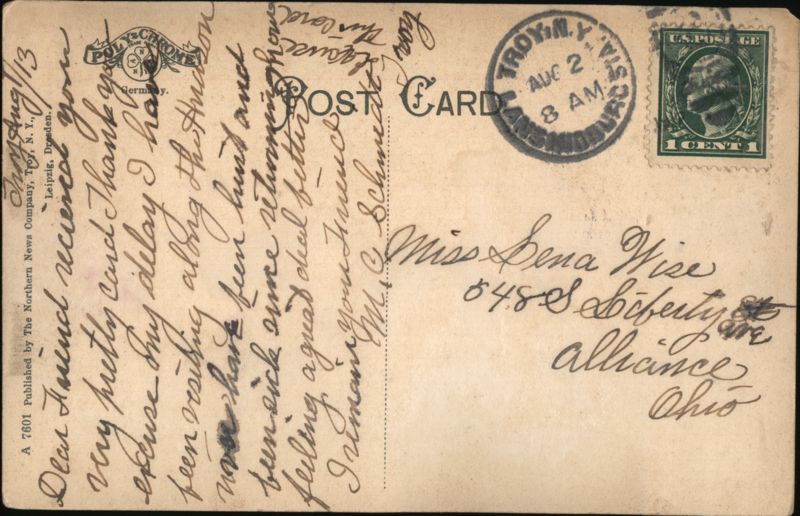 A 7601 Published by The Northern News Company, Troy, N. Y.,
Leipzig, Dresden.
POLY-CHROME
Germany.
POST CARD
TROY, N.Y.
LANSINGBURG STA.
AUG 2
8 AM
U.S. POSTAGE
1 CENT 1
Troy Aug 1/13
Dear Friend recieved your
very pretty card Thank you
excuse my delay I have
been visiting along the Hudson
have been hurt and
been sick since returning home
feeling a great deal better
I remain your Friend
M. C. Schmidt
excuse
this card
Miss Lena Wise
548 S Liberty St
ave
Alliance
Ohio